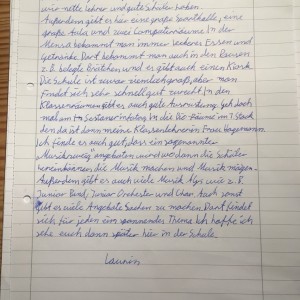 wir nette lehrer und gute Schüler haben.
Außerdem gibt es hier eine große Sporthalle, eine
große Aula und zwei Computerräume. In der
Mensa bekommt man immer leckeres Essen und
Getränke. Dort bekommt man auch in den Pausen
z.B. belegte Brötchen und es gibt auch einen Kiosk.
Die Schule ist zwar ziemlich groß, aber man
findet sich sehr schnell gut zurecht. In den
Klassenräumen gibt es auch gute Ausrüstung. Geh doch
mal am Sextanerinfotag in die Räume im 1. Stock
den da ist dann meine Klassenlehrerin Frau
Ich finde es auch gut, dass ein sogenannter
Musikzweig angeboten wird wo dann die Schüler
reinkommen die Musik machen und Musik mögen.
Außerdem gibt es auch viele Musik Ags wie z.B.
Junior Band, Junior Orchester und Chor. Auch sonst
gibt es viele Angebote Sachen zu machen. Dort findet
sich für jeden ein spannendes Thema. Ich hoffe ich
sehe euch dann später hier in der Schule.